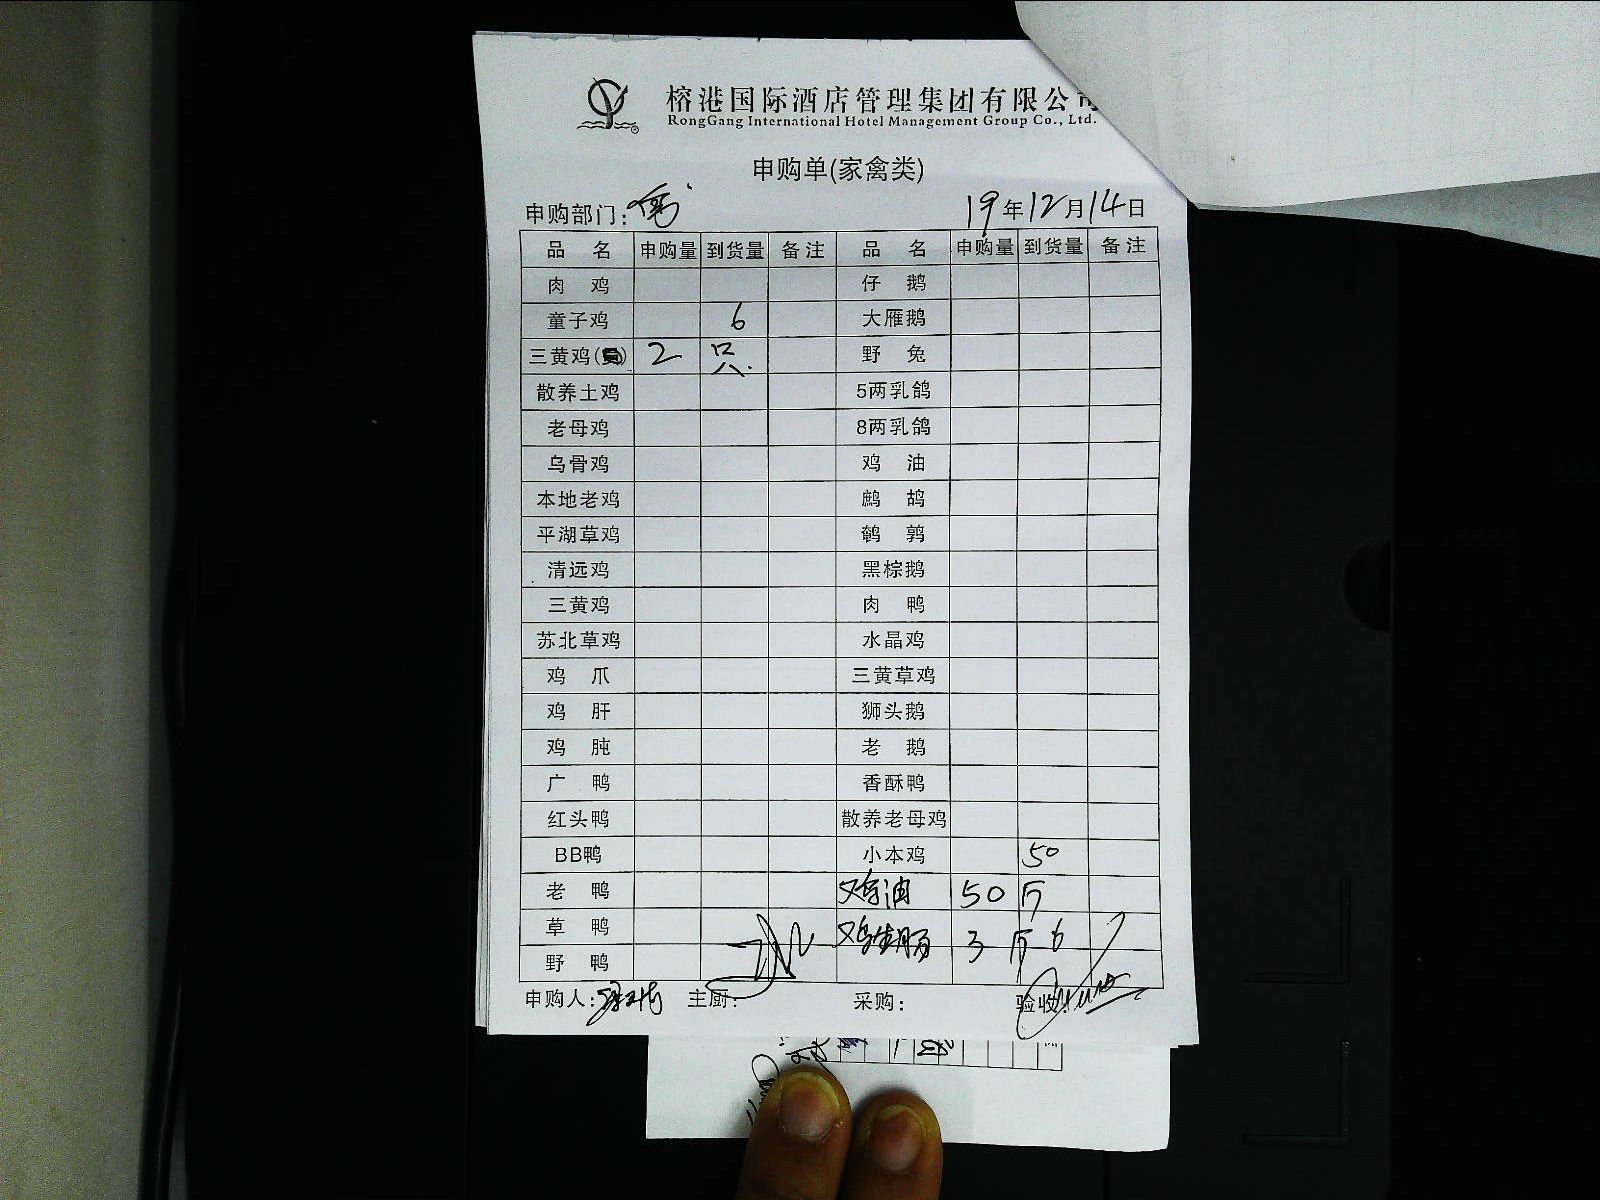 榕港国际酒店管理集团有限公司
RongGang International Hotel Management Group Co., Ltd.
申购单(家禽类)
申购部门: 19年12月14日
品名 申购量 到货量 备注 品名 申购量 到货量 备注
肉鸡 仔鹅
童子鸡 6 大雁鹅
三黄鸡( ) 2 只 野兔
散养土鸡 5两乳鸽
老母鸡 8两乳鸽
乌骨鸡 鸡油
本地老鸡 鹧鸪
平湖草鸡 鹌鹑
清远鸡 黑棕鹅
三黄鸡 肉鸭
苏北草鸡 水晶鸡
鸡爪 三黄草鸡
鸡肝 狮头鹅
鸡肫 老鹅
广鸭 香酥鸭
红头鸭 散养老母鸡
BB鸭 小本鸡 50
老鸭 鸡油 50 斤
草鸭 鸡生肠 3 斤 6
野鸭
申购人: 主厨: 采购: 验收: